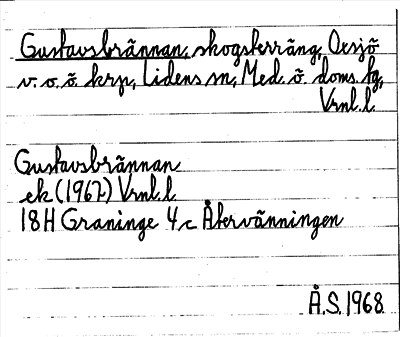 Gustavsbrännan, skogsterräng, Oxsjö
v. o. ö. krp, Lidens sn, Med. ö. doms. tg,
Vrnl. l.
Gustavsbrännan
ek (1967) Vrnl. l.
18H Graninge 4 c Återvänningen
Å.S. 1968